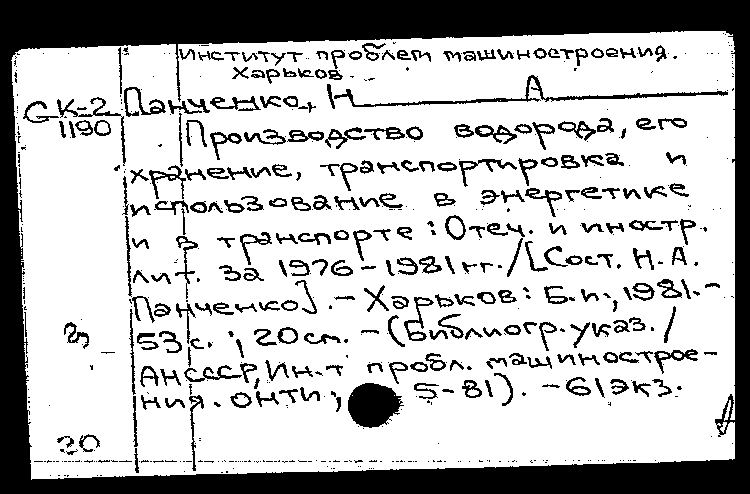 Институт проблем машиностроения.
Харьков.
СК-2 Панченко, Н А
1190
Производство водорода, его
хранение, транспортировка и
использование в энергетике
и в транспорте : Отеч. и иностр.
лит. за 1976-1981 гг. / [Сост. Н.А.
Панченко]. - Харьков : Б.и., 1981. -
53 с. ; 20 см. - (Библиогр. указ. /
АНСССР, Ин-т пробл. машинострое-
ния. ОНТИ ; 5-81). - 61 экз.
20